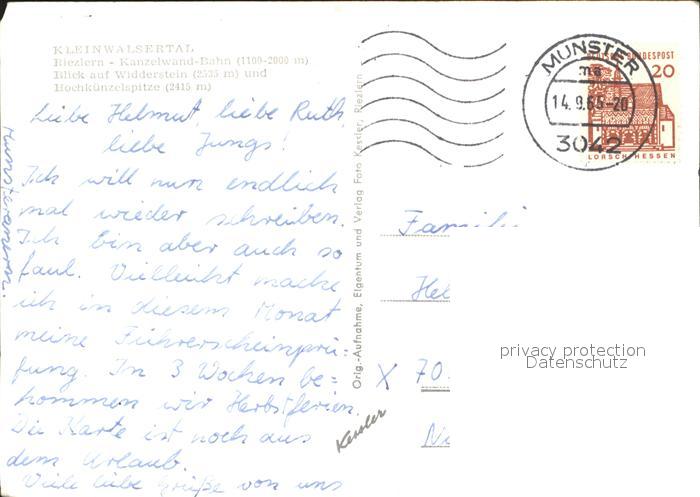 KLEINWALSERTAL
Riezlern - Kanzelwand-Bahn (1100-2000 m)
Blick auf Widderstein (2535 m) und
Hochkünzelspitze (2415 m)
Liebe Helmut, liebe Ruth,
liebe Jungs!
Ich will nun endlich
mal wieder schreiben.
Ich bin aber auch so
faul. Vielleicht mache
ich in diesem Monat
meine Führerscheinprü-
fung. In 3 Wochen be-
kommen wir Herbstferien.
Die Karte ist noch aus
dem Urlaub.
Viele liebe Grüße von uns
Orig.-Aufnahme, Eigentum und Verlag Foto Kessler, Riezlern
Kessler
MUNSTER
14.9.65-20
3042
DEUTSCHE BUNDESPOST
20
LORSCH/HESSEN
Familie
Hel
X 70
privacy protection
Datenschutz